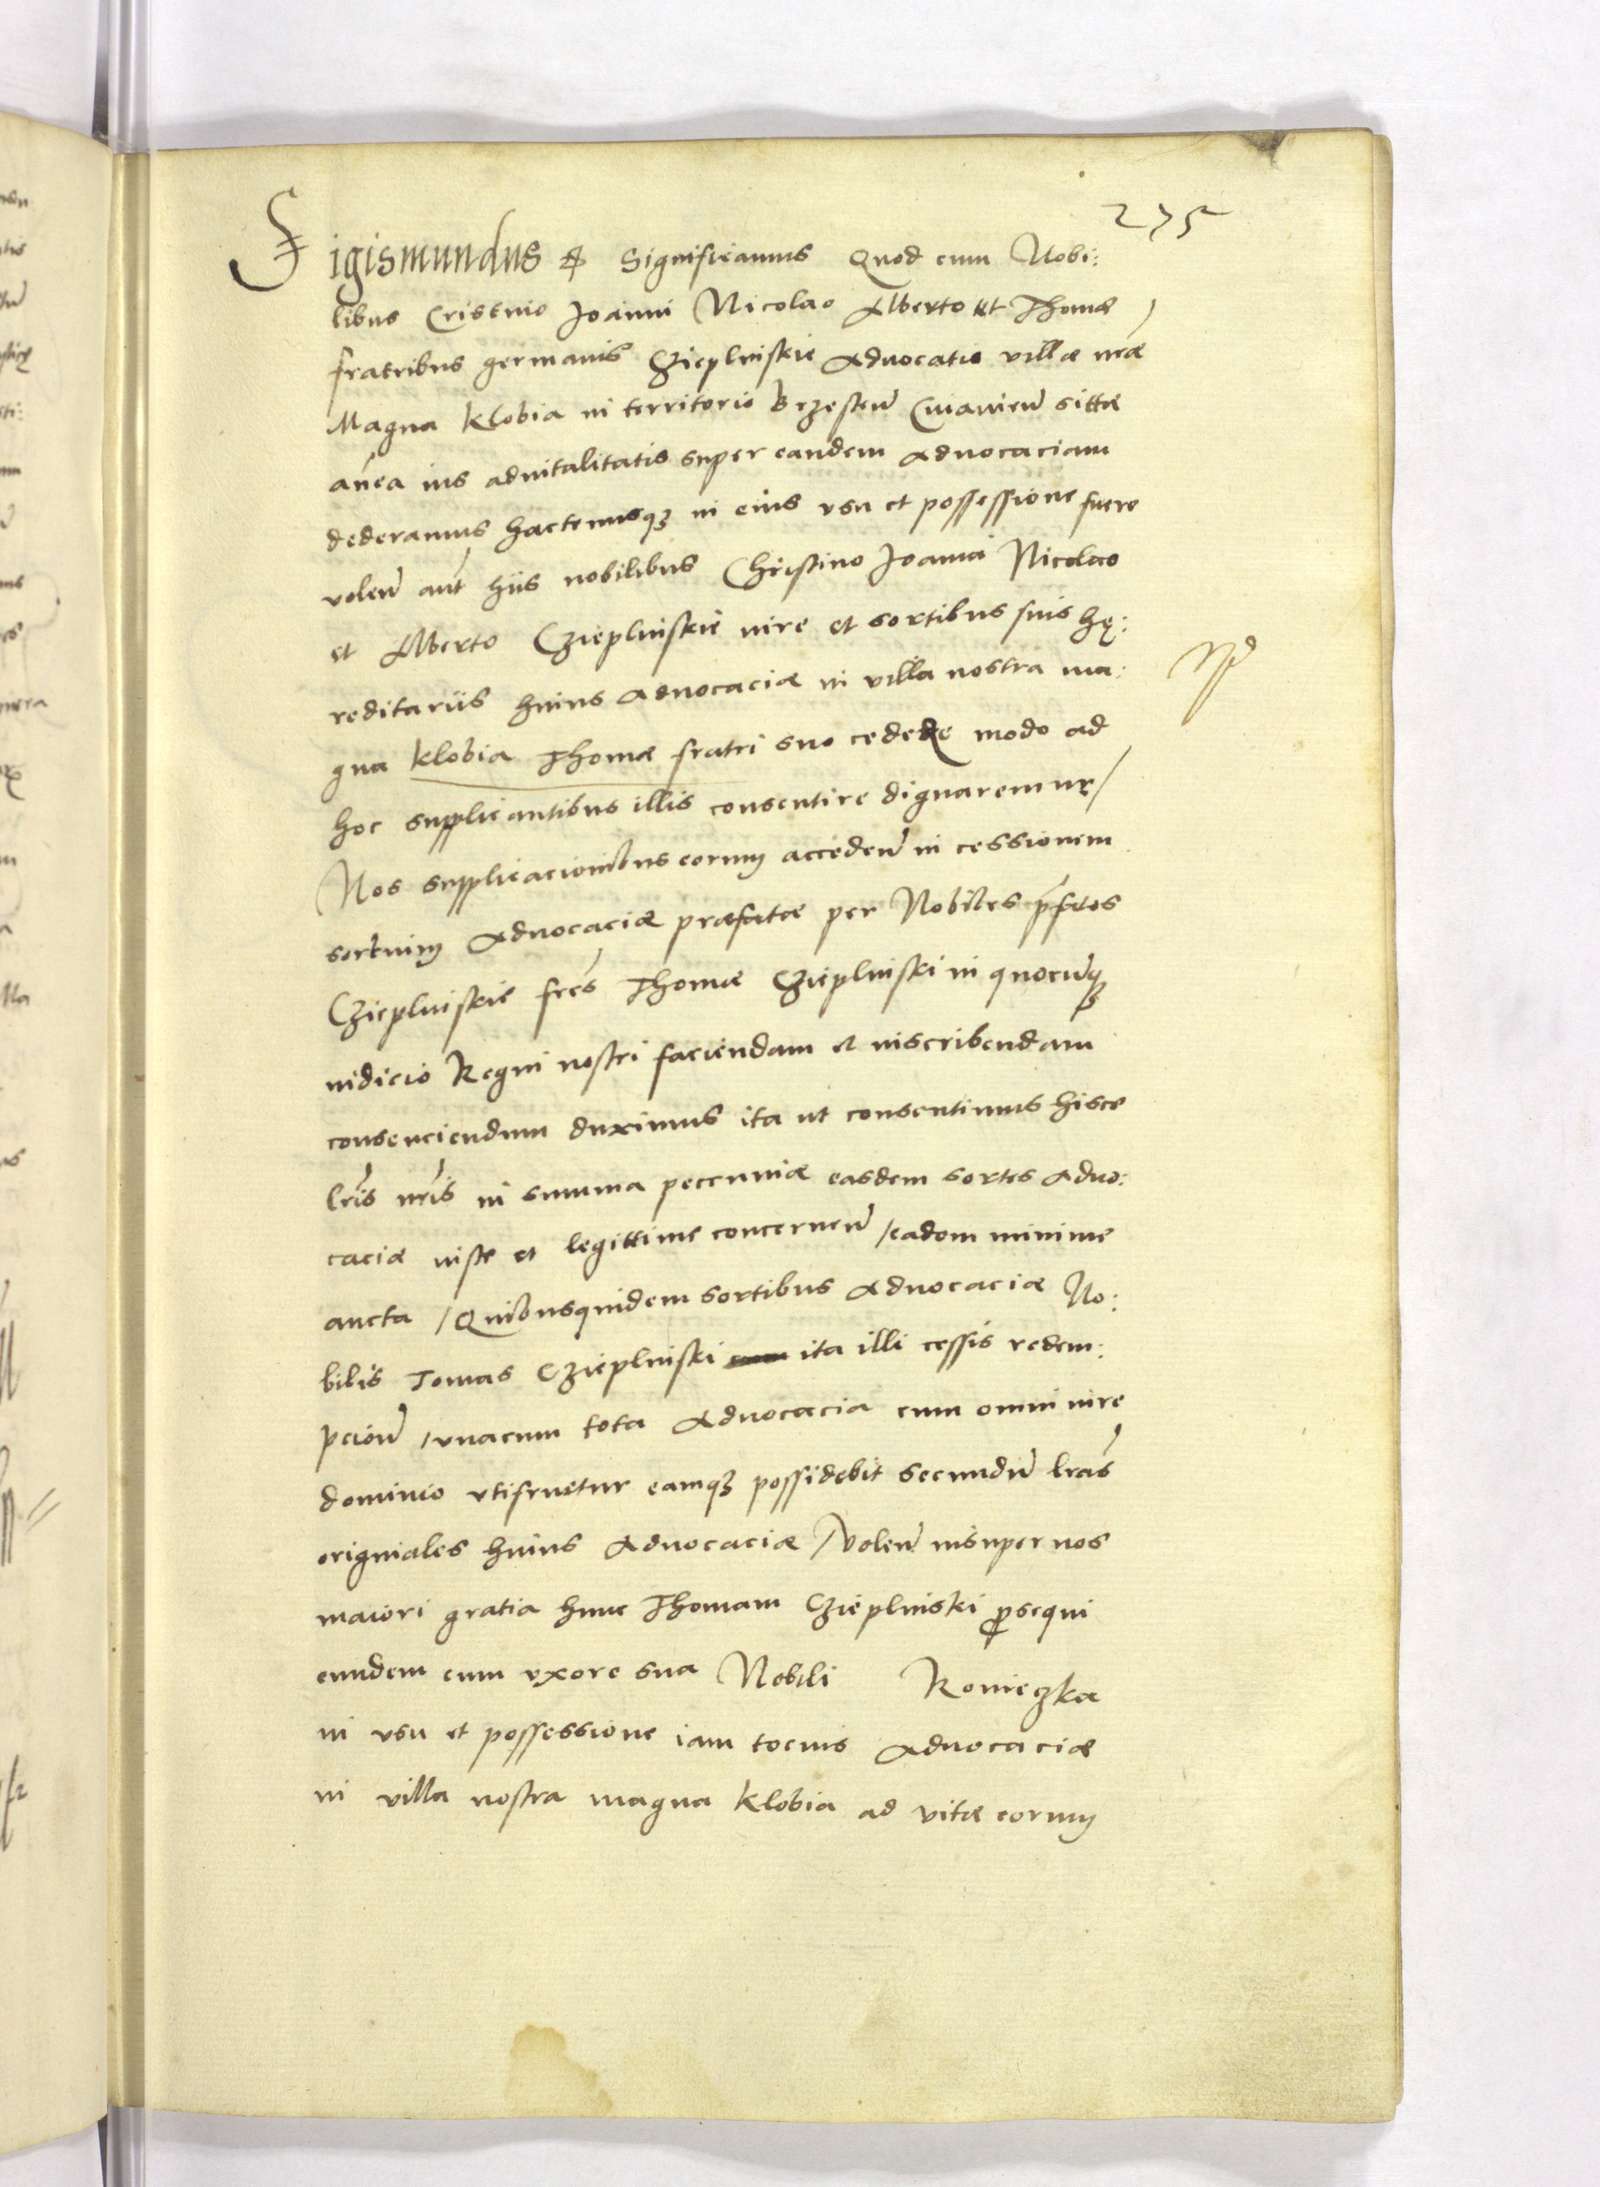 275
Sigismundus etc Significamus Quod cum Nobi:
libus Cristino Joanni Nicolao Alberto et Thomæ /
fratribus germanis Czieplinskie Advocatis villæ nr̄æ
Magna Klobia in territorio Brzesteñ Cuiavieñ sittæ
añea ius advitalitatis super eandem Advocaciam
dederamus hactenusqꝫ in eius usu et possessione fuere
voleñ aut̄ hiis nobilibus Christino Joanni Nicolao
et Alberto Czieplinskie iure et sortibus suis hę:
reditariis huius Advocaciæ in villa nostra ma:
gna Klobia Thomæ fratri suo cedere modo ad
hoc supplicantibus illis consentire dignaremur /
Nos supplicacionibus eorum accedeñ in cessionem
sortium Advocaciæ præfatæ per Nobiles p̄fatos
Czieplinskie fres̄ Thomæ Czieplinski in quocunqꝫ
iudicio Regni nostri faciendam et inscribendam
consenciendum duximus ita ut consentimus hisce
lris̄ nris̄ in summa peccuniæ easdem sortes Advo:
caciæ iuste et legittime concerneñ / eadem minime
aucta / Quibusquidem sortibus Advocaciæ No:
bilis Tomas Czieplinski ita illi cessis redem:
pcioñ / unacum tota Advocacia cum omni iure
dominio utifruetur eamqꝫ possidebit secundū lras̄
originales huius Advocaciæ / Voleñ insuper nos
maiori gratia hunc Thomam Czieplinski ꝓsequi
eundem cum uxore sua Nobili Konieczka
in usu et possessione iam tocius Advocaciæ
in villa nostra magna Klobia ad vitæ eorum